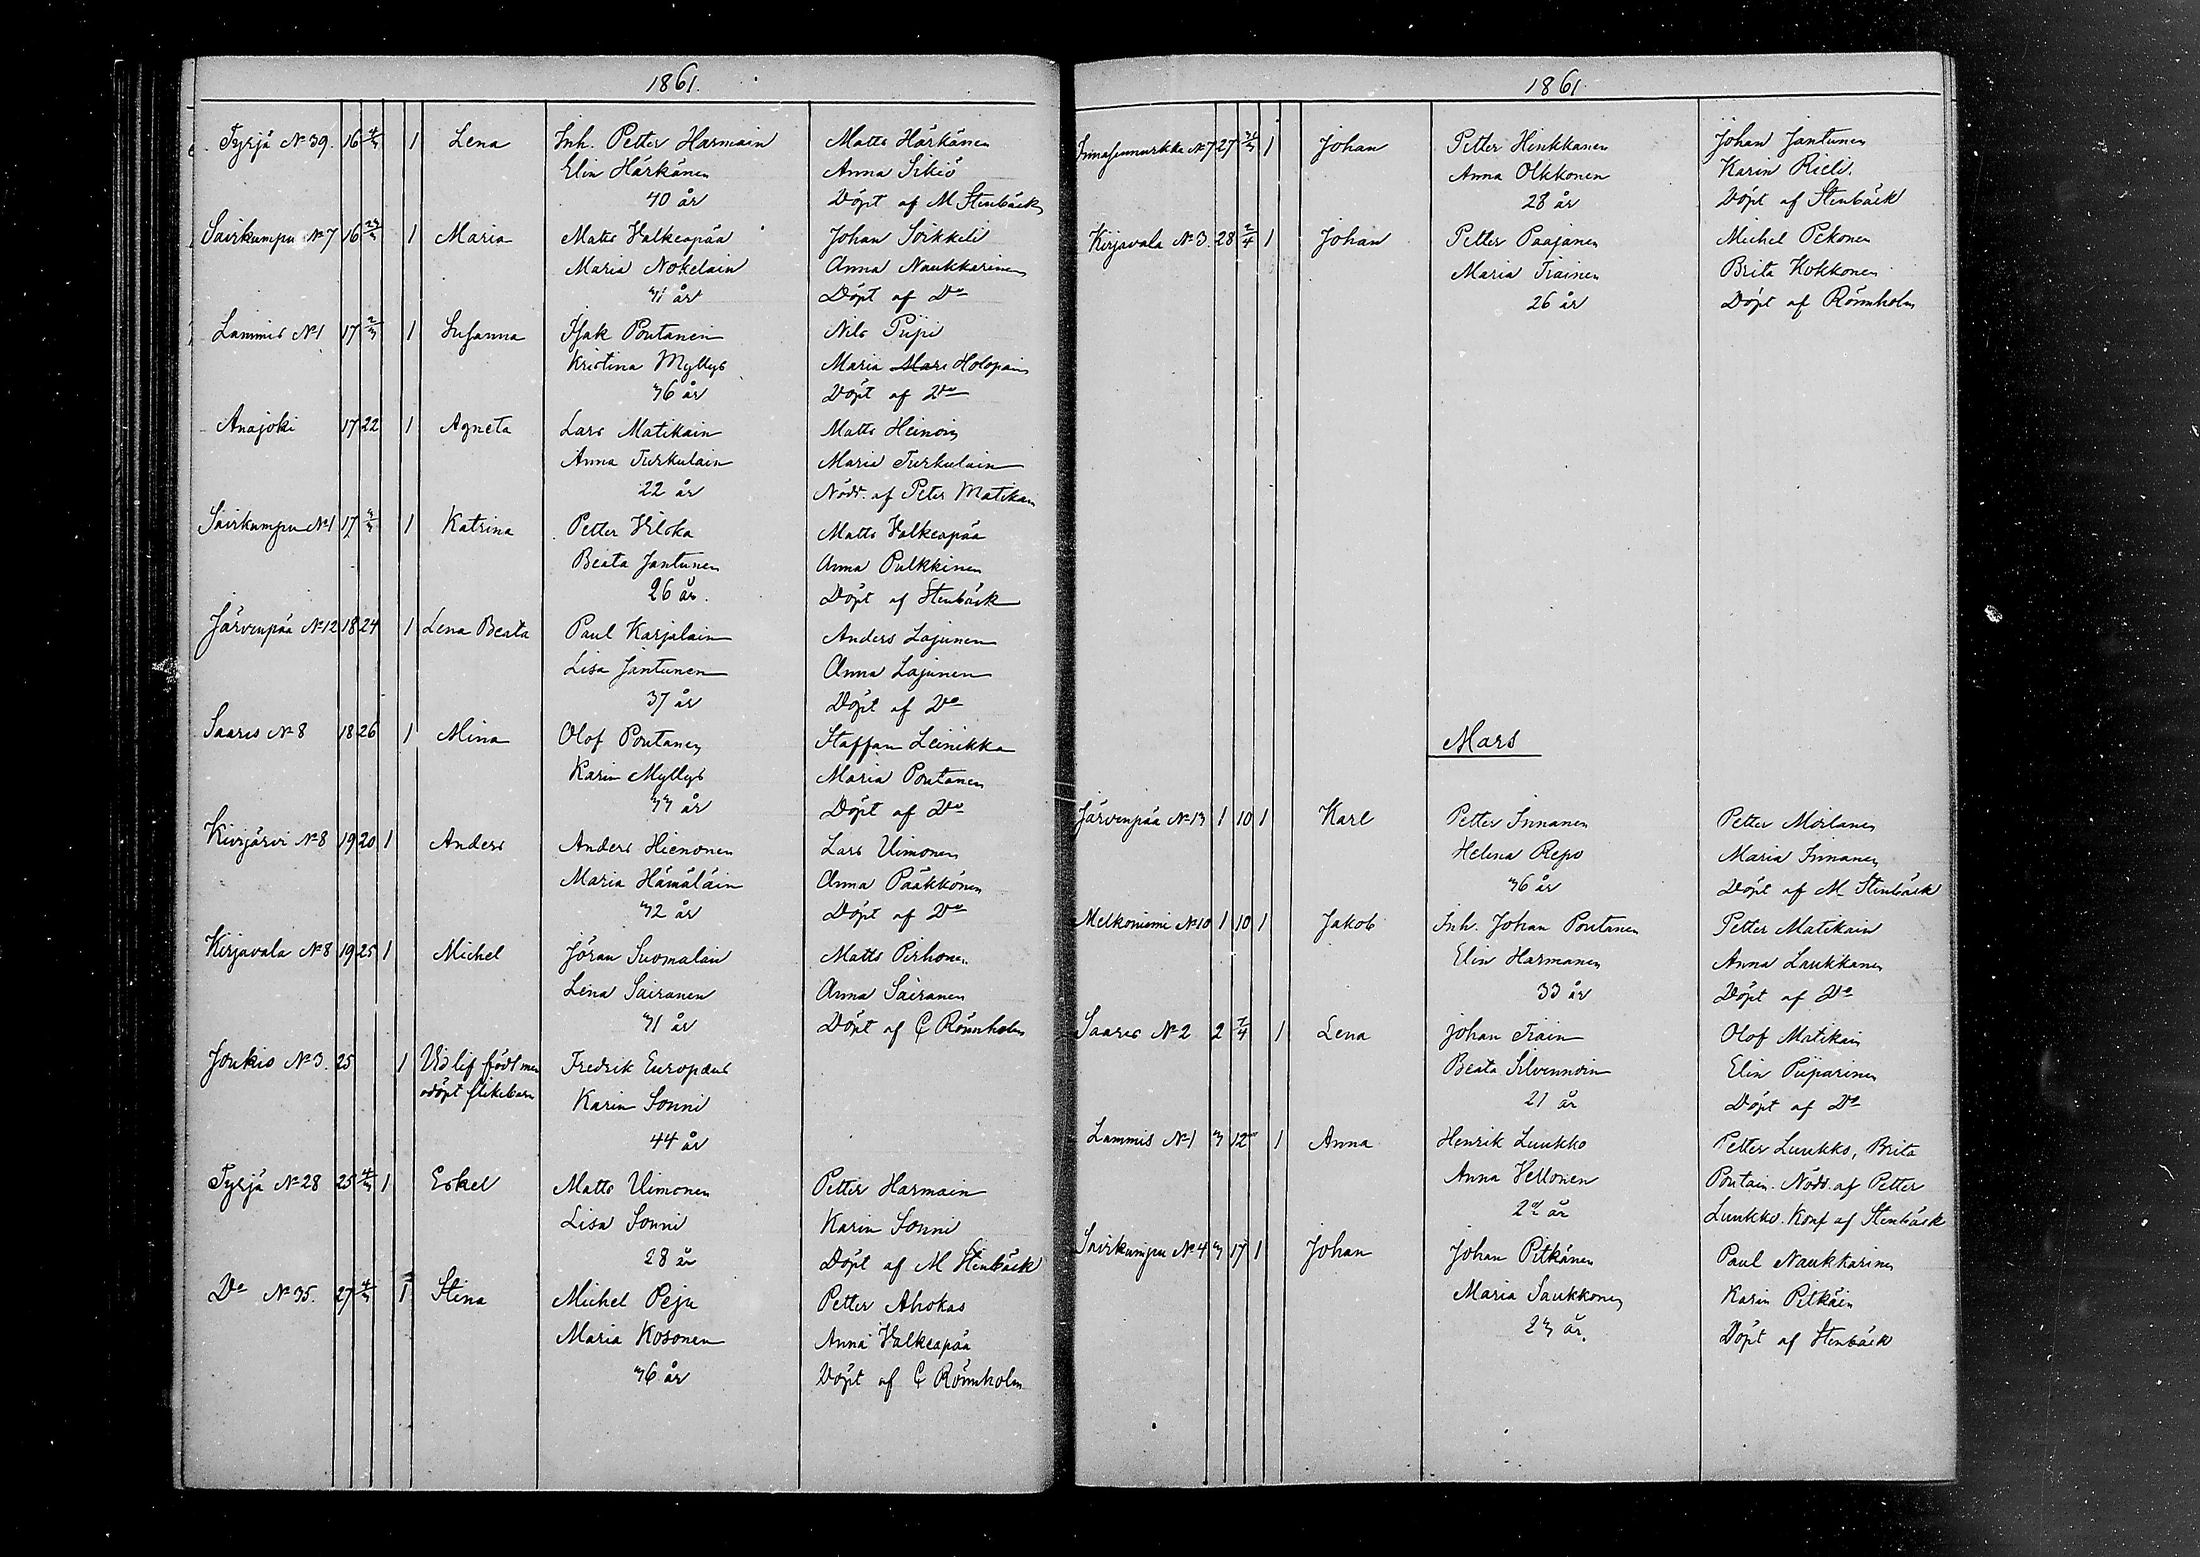 1861.
Tyrjä No 39. 16 4/3 1 Lena Inh. Petter Harmain Matts Härkänen
Elin Härkänen Anna Sikiö
40 år Döpt af M Stenbäck
Sairkumpu No 7 16 23/3 1 Maria Matts Valkeapää Johan Soikkeli
Maria Nokelain Anna Naukkarinen
31 år Döpt af Do
Lammis No 1 17 2/3 1 Susanna Isak Pontanen Nils Piipi
Kristina Myllys Maria Mari Holopain
36 år Döpt af Do
Anajoki 17 22 1 Agneta Lars Matikain Matts Heinoin
Anna Turkulain Maria Turkulain
22 år Nöd. af Peter Matikain
Sairkumpu No 1 17 3/3 1 Katrina Petter Vilska Matts Valkeapää
Beata Jantunen Anna Pulkkinen
26 år. Döpt af Stenbäck
Järvenpää No 12 18 24 1 Lena Beata Paul Karjalain Anders Lajunen
Lisa Jantunen Anna Lajunen
37 år Döpt af Do
Saares No 8 18 26 1 Mina Olof Pontanen Staffan Leinikka
Karin Myllys Maria Pontanen
33 år Döpt af Do
Kivijärvi No 8 19 20 1 Anders Anders Hienonen Lars Uimonen
Maria Hämäläin Anna Pääkkönen
32 år Döpt af Do
Kirjavala No 8 19 25 1 Michel Jöran Suomalain Matts Pirhonen
Lena Sairanen Anna Sairanen
31 år Döpt af C Rönnholm
Joukio No 3. 25 1 Vid lif född men Fredrik Europæus
odöpt flickebarn Karin Sonni
44 år
Tyrjä No 28 25 4/3 1 Eskel Matts Uimonen Petter Harmain
Lisa Sonni Karin Sonni
28 år Döpt af M Stenbäck
Do No 35. 27 4/3 1 Stina Michel Peju Petter Ahokas
Maria Kosonen Anna Valkeapää
36 år Döpt af C Rönnholm
1861
No 7 27 1 Johan Petter Hinkkanen Johan Jantunen
Anna Olkkonen Karin Rieli.
28 år Döpt af Stenbäck
Kirjavala No 3. 28 2/4 1 Johan Petter Paajanen Michel Pekonen
Maria Tiainen Brita Kokkonen
26 år Döpt af Rönnholm
Mars
Järvenpää No 13 1 10 1 Karl Petter Innanen Petter Moilanen
Helena Repo Maria Innanen
36 år Döpt af M Stenbäck
Melkoniemi No 10 1 10 1 Jakob Inh. Johan Pontanen Petter Matikain
Elin Harmanen Anna Laukkanen
33 år Döpt af Do
Saares No 2 2 7/4 1 Lena Johan Tiain Olof Matikain
Beata Silvennoin Elin Piiparinen
21 år Döpt af Do
Lammis No 1 3 12 1 Anna Henrik Luukko Petter Luukko, Brita
Anna Vellonen Pontain. Nöd. af Petter
år Luukko. Konf af Stenbäck
Sairkumpu No 4 3 17 1 Johan Johan Pitkänen Paul Naukkarinen
Maria Saukkonen Karin Pitkäin
23 år. Döpt af Stenbäck